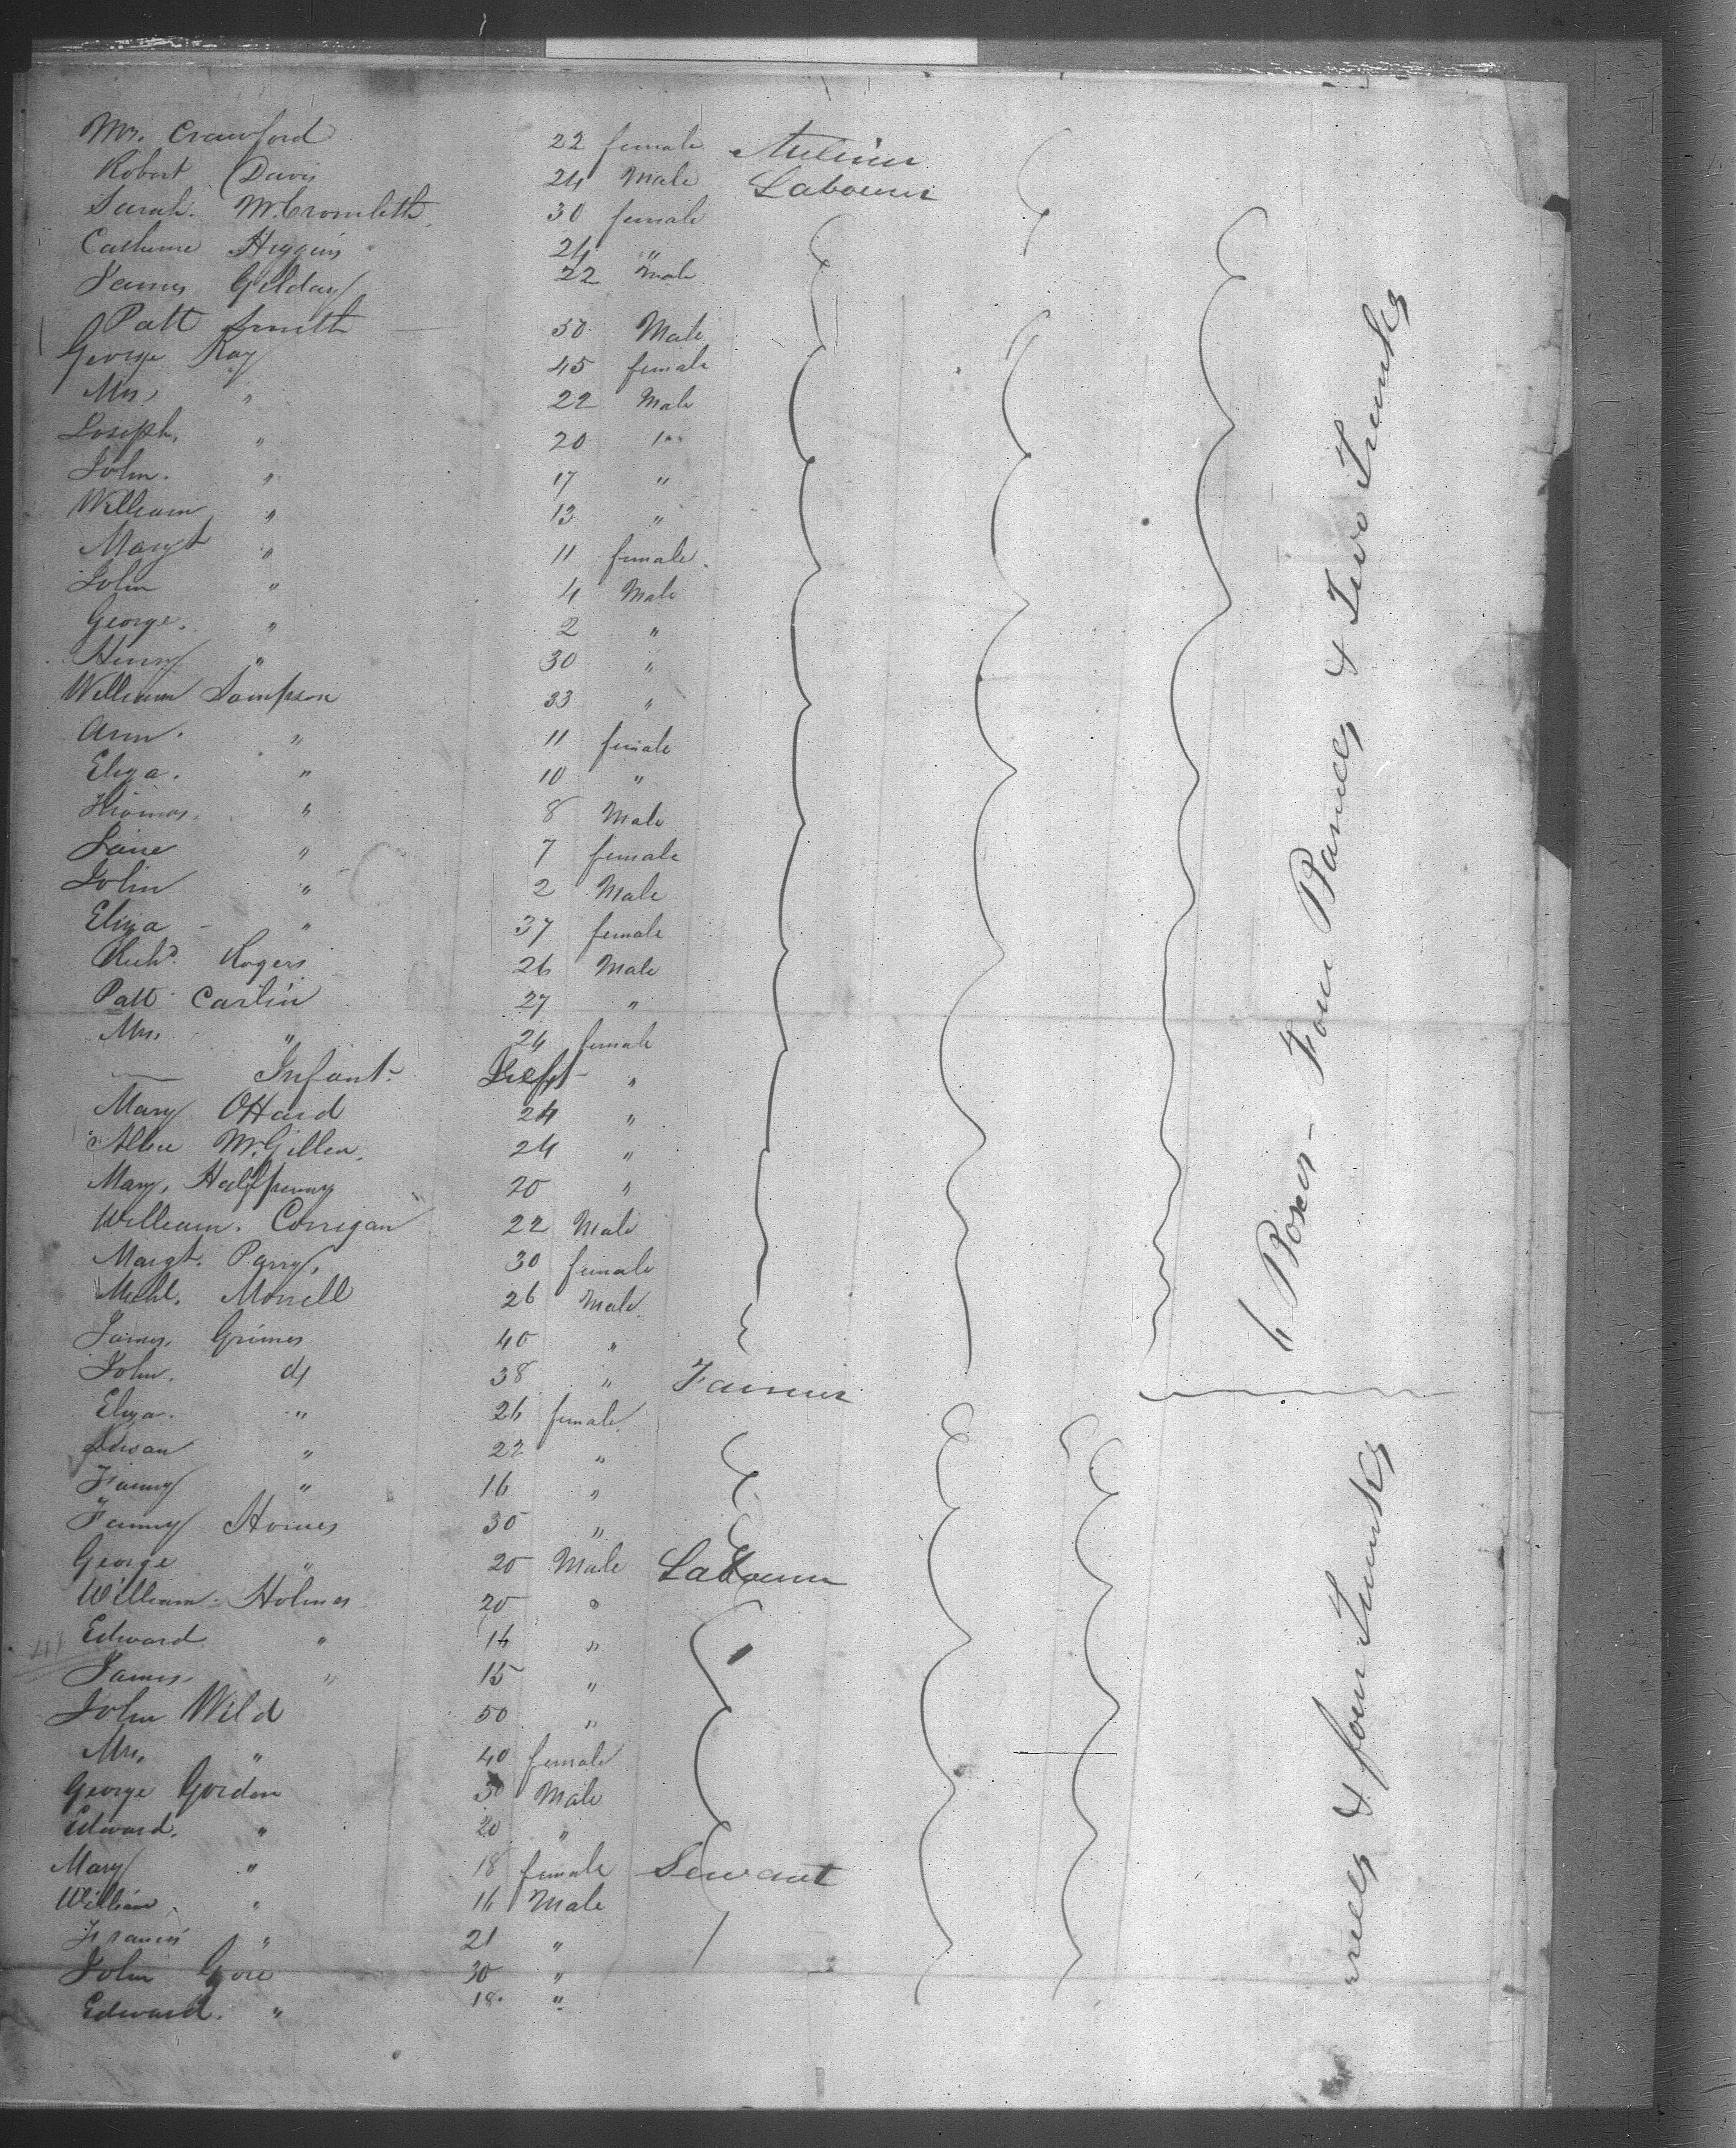 Mrs. Crawford 22 female
Robert Davis 24 Male Labourer
Sarah. McCromleth 30 female
Catherine Higgins 24 "
James Gilday 22 Male
Patt Smith 30 Male
George Ray 45 female
Mrs " 22 Male
Joseph. " 20 "
John. " 17 "
William " 13 "
Margt " 11 female.
John " 4 Male
George. " 2 "
Henry " 30 "
William Sampson 33 "
Ann. " 11 female
Eliza. " 10 "
Thomas. " 8 Male
Jane " 7 female
John " 2 Male
Eliza - " 37 female
Richd. Rogers 26 Male
Patt Carlin 27 "
Mrs. " 24 female
— Infant - "
Mary OHard 24 "
McGillen. 24 "
Mary, Halfpenny 20 "
William. Corrigan 22 Male
Margt. Parry. 30 female
Michl. Morrell 26 Male
James. Grimes 40 "
John. do 38 " Farmer
Eliza. " 26 female
Susan " 22 "
Fanny " 16 "
Fanny Homes 30 "
George " 20 Male Labourer
William - Holmes 20 "
Edward " 14 "
James. " 15 "
John Wild 50 "
Mrs. " 40 female
George Gordon 30 Male
Edward. " 20 "
Mary " 18 female Servant
William " 16 Male
Francis " 21 "
John Gore 30 "
Edward. " 18. "
4 Boxes - Four Barrels & Two Trunks
rrels & four Trunks